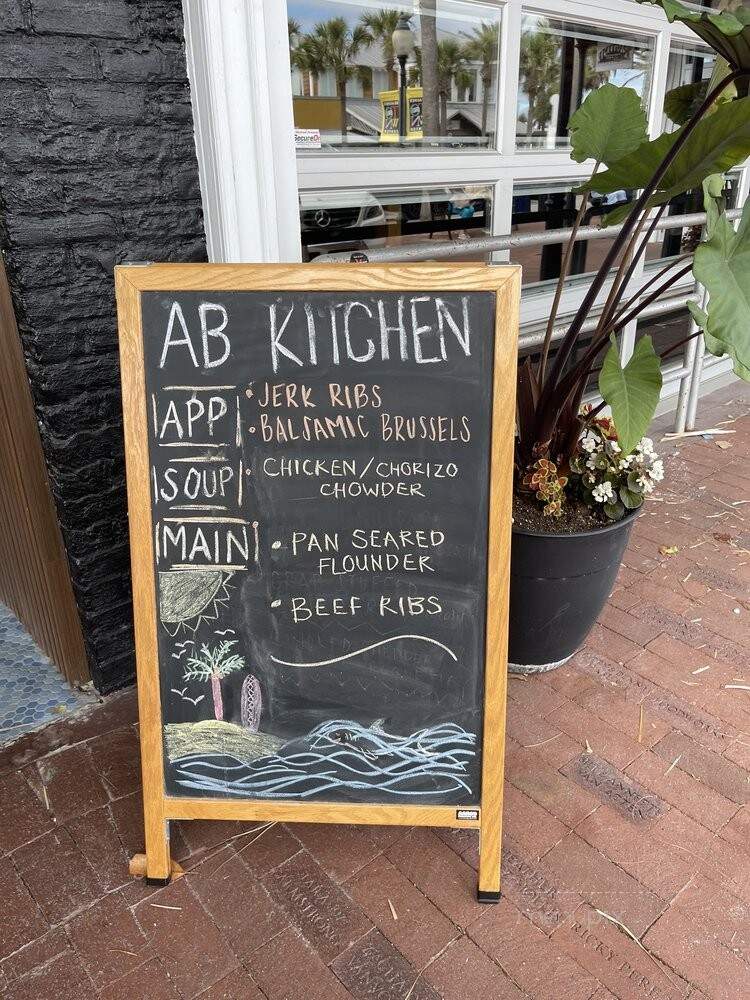 SecureOn
AB KITCHEN
APP
• JERK RIBS
• BALSAMIC BRUSSELS
SOUP
• CHICKEN/CHORIZO
CHOWDER
MAIN
• PAN SEARED
FLOUNDER
• BEEF RIBS
ARMSTRONG
RICKY